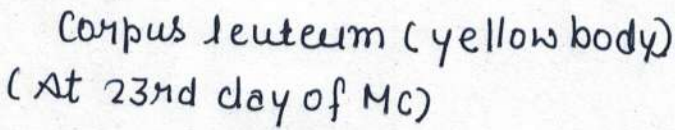 Corpus leuteum (yellow body)
(At 23rd day of MC)